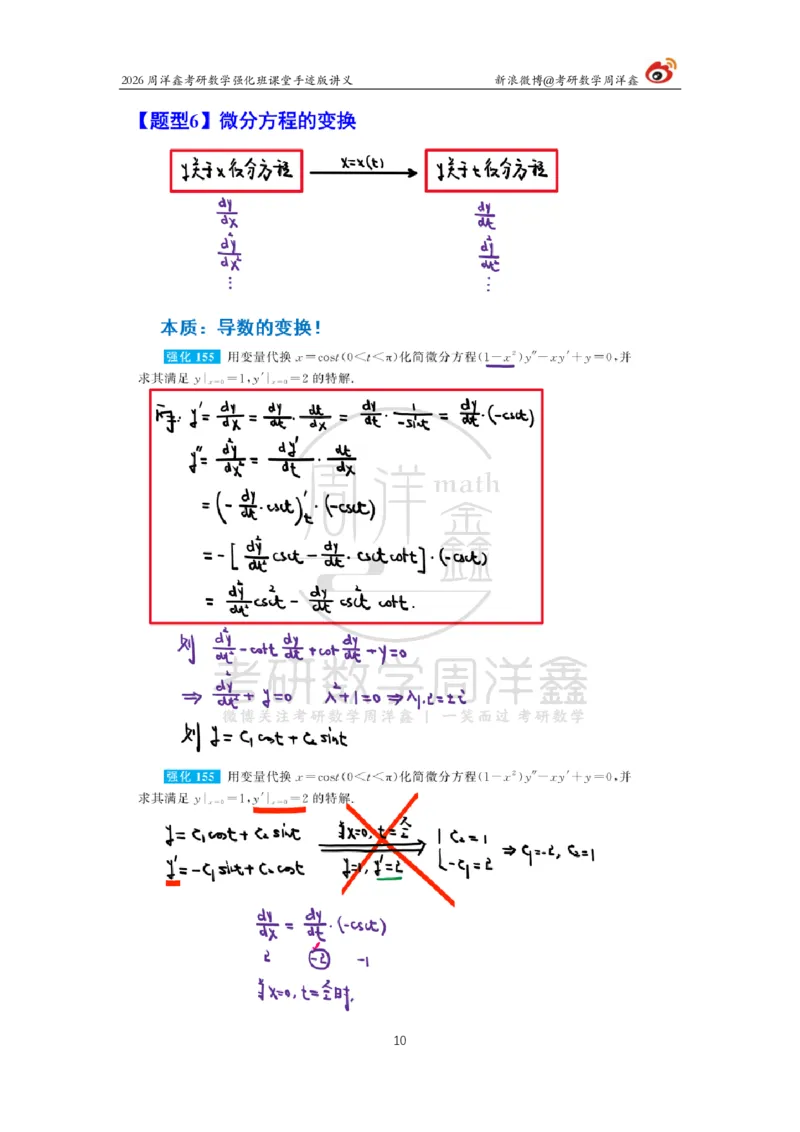 2026 周洋鑫考研数学强化班课堂手迹版讲义 新浪微博@考研数学周洋鑫
【题型6】微分方程的变换
y关于x微分方程 x=x(t) y关于t微分方程
dy/dx dy/dt
d²y/dx² d²y/dt²
⋮ ⋮
本质：导数的变换！
强化 155 用变量代换 x=cost(0<t<π)化简微分方程(1-x²)y″-xy′+y=0,并
求其满足 y|ₓ₌₀=1,y′|ₓ₌₀=2 的特解.
y'= dy/dx = dy/dt · dt/dx = dy/dt · 1/-sint = dy/dt·(-csct)
y''= d²y/dx² = dy'/dt · dt/dx
=(- dy/dt · csct)'ₜ · (-csct)
=-[ d²y/dt² csct - dy/dt · csct cott ] · (-csct)
= d²y/dt² csc²t - dy/dt csc²t cott .
则 d²y/dt² - cott dy/dt + cot dy/dt + y=0
⇒ d²y/dt² + y=0 λ²+1=0 ⇒ λ₁,₂=±i
则 y= C₁ cost + C₂ sint
周洋鑫 math
考研数学周洋鑫
微博关注考研数学周洋鑫 | 一笑而过 考研数学
强化 155 用变量代换 x=cost(0<t<π)化简微分方程(1-x²)y″-xy′+y=0,并
求其满足 y|ₓ₌₀=1,y′|ₓ₌₀=2 的特解.
y= C₁cost + C₂ sint 当x=0, t=π/2 C₂=1
y'=-C₁ sint + C₂ cost y=1, y'=2 -C₁=2 ⇒ C₁=-2, C₂=1
dy/dx = dy/dt · (-csct)
2 -2 -1
当x=0, t=π/2时,
10